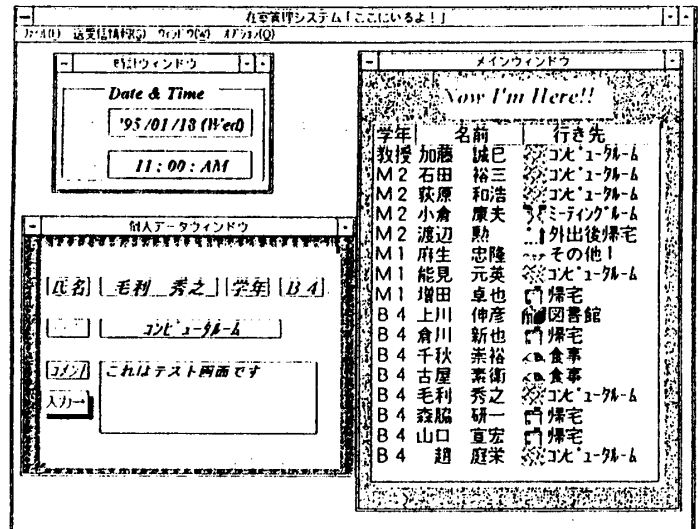 在室管理システム「ここにいるよ！」
ファイル(F) 送受信情報(S) ウィンドウ(W) オプション(O)
時計ウィンドウ
Date & Time
'95/01/18 (Wed)
11:00:AM
個人データウィンドウ
氏名 毛利 秀之 学年 B4
コンピュータルーム
コメント これはテスト画面です
入力→
メインウィンドウ
Now I'm Here!!
学年 名前 行き先
教授 加藤 誠巳 コンピュータルーム
M2 石田 裕三 コンピュータルーム
M2 荻原 和浩 コンピュータルーム
M2 小倉 康夫 ミーティングルーム
M2 渡辺 勲 外出後帰宅
M1 麻生 忠隆 その他！
M1 能見 元英 コンピュータルーム
M1 増田 卓也 帰宅
B4 上川 伸彦 図書館
B4 倉川 新也 帰宅
B4 千秋 崇裕 食事
B4 古屋 素衛 食事
B4 毛利 秀之 コンピュータルーム
B4 森脇 研一 帰宅
B4 山口 宣宏 帰宅
B4 趙 庭栄 コンピュータルーム